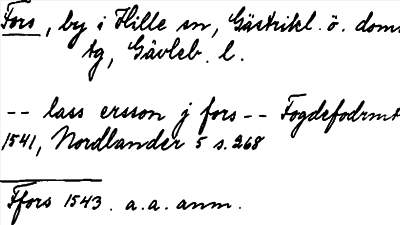 Fors, by i Hille sn, Gästrikl. ö. doms
tg, Gävleb. l.
-- lass ersson j fors -- Fogdefodrmt
1541, Nordlander 5 s. 268
Ffors 1543. a. a. anm.